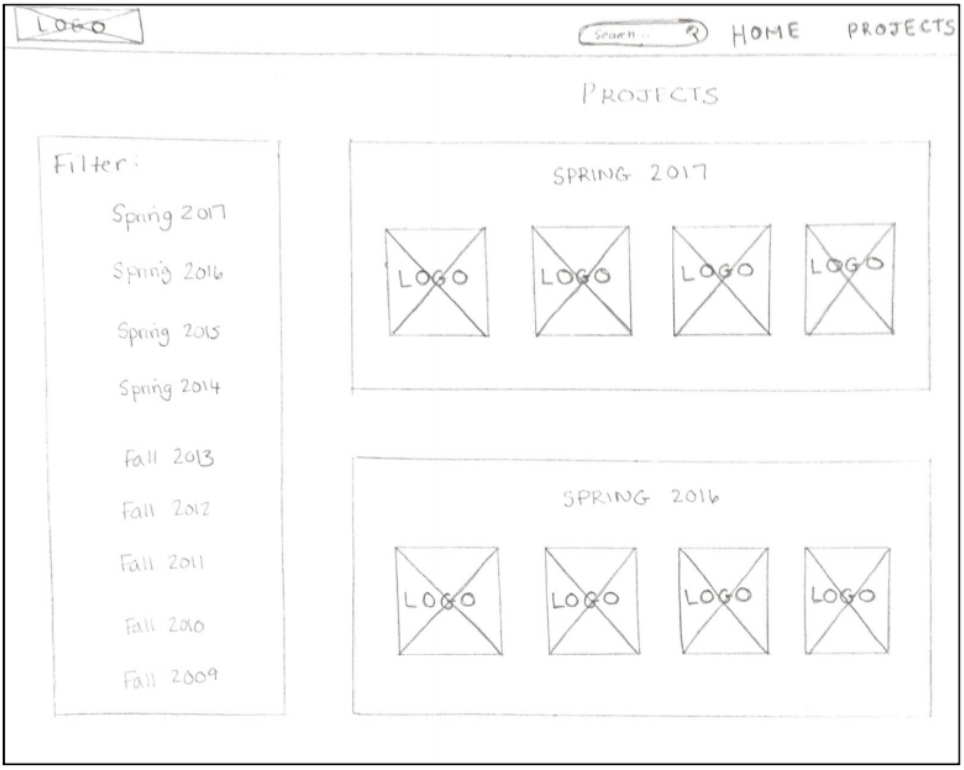 LOGO
Search... HOME PROJECTS
PROJECTS
Filter:
Spring 2017
Spring 2016
Spring 2015
Spring 2014
Fall 2013
Fall 2012
Fall 2011
Fall 2010
Fall 2009
SPRING 2017
LOGO LOGO LOGO LOGO
SPRING 2016
LOGO LOGO LOGO LOGO